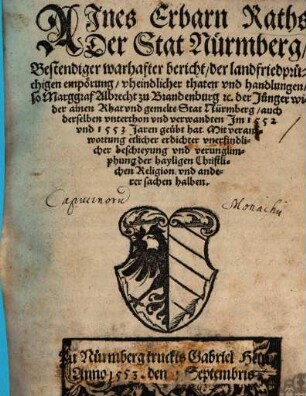 AInes Erbarn Raths
Der Stat Nürmberg/
Bestendiger warhafter bericht/der landfriedprü-
chigen empörung/ vheindlicher thaten vnd handlungen/
so Marggraf Albrecht zu Brandenburg ꝛc. der Jünger wi-
der ainen Rhat vnd gemelte Stat Nürmberg/auch
derselben vnterthon vnd verwandten Im 1552
vnd 1553 Jaren geübt hat Mit verant-
wortung etlicher erdichter vnerfindli-
cher beschreyung vnd verunglim-
phung der hayligen Christli-
chen Religion vnd ande-
rer sachen halben.
Capucinorū Monachij
Zu Nürmberg truckts Gabriel
Anno 1553. den Septembris